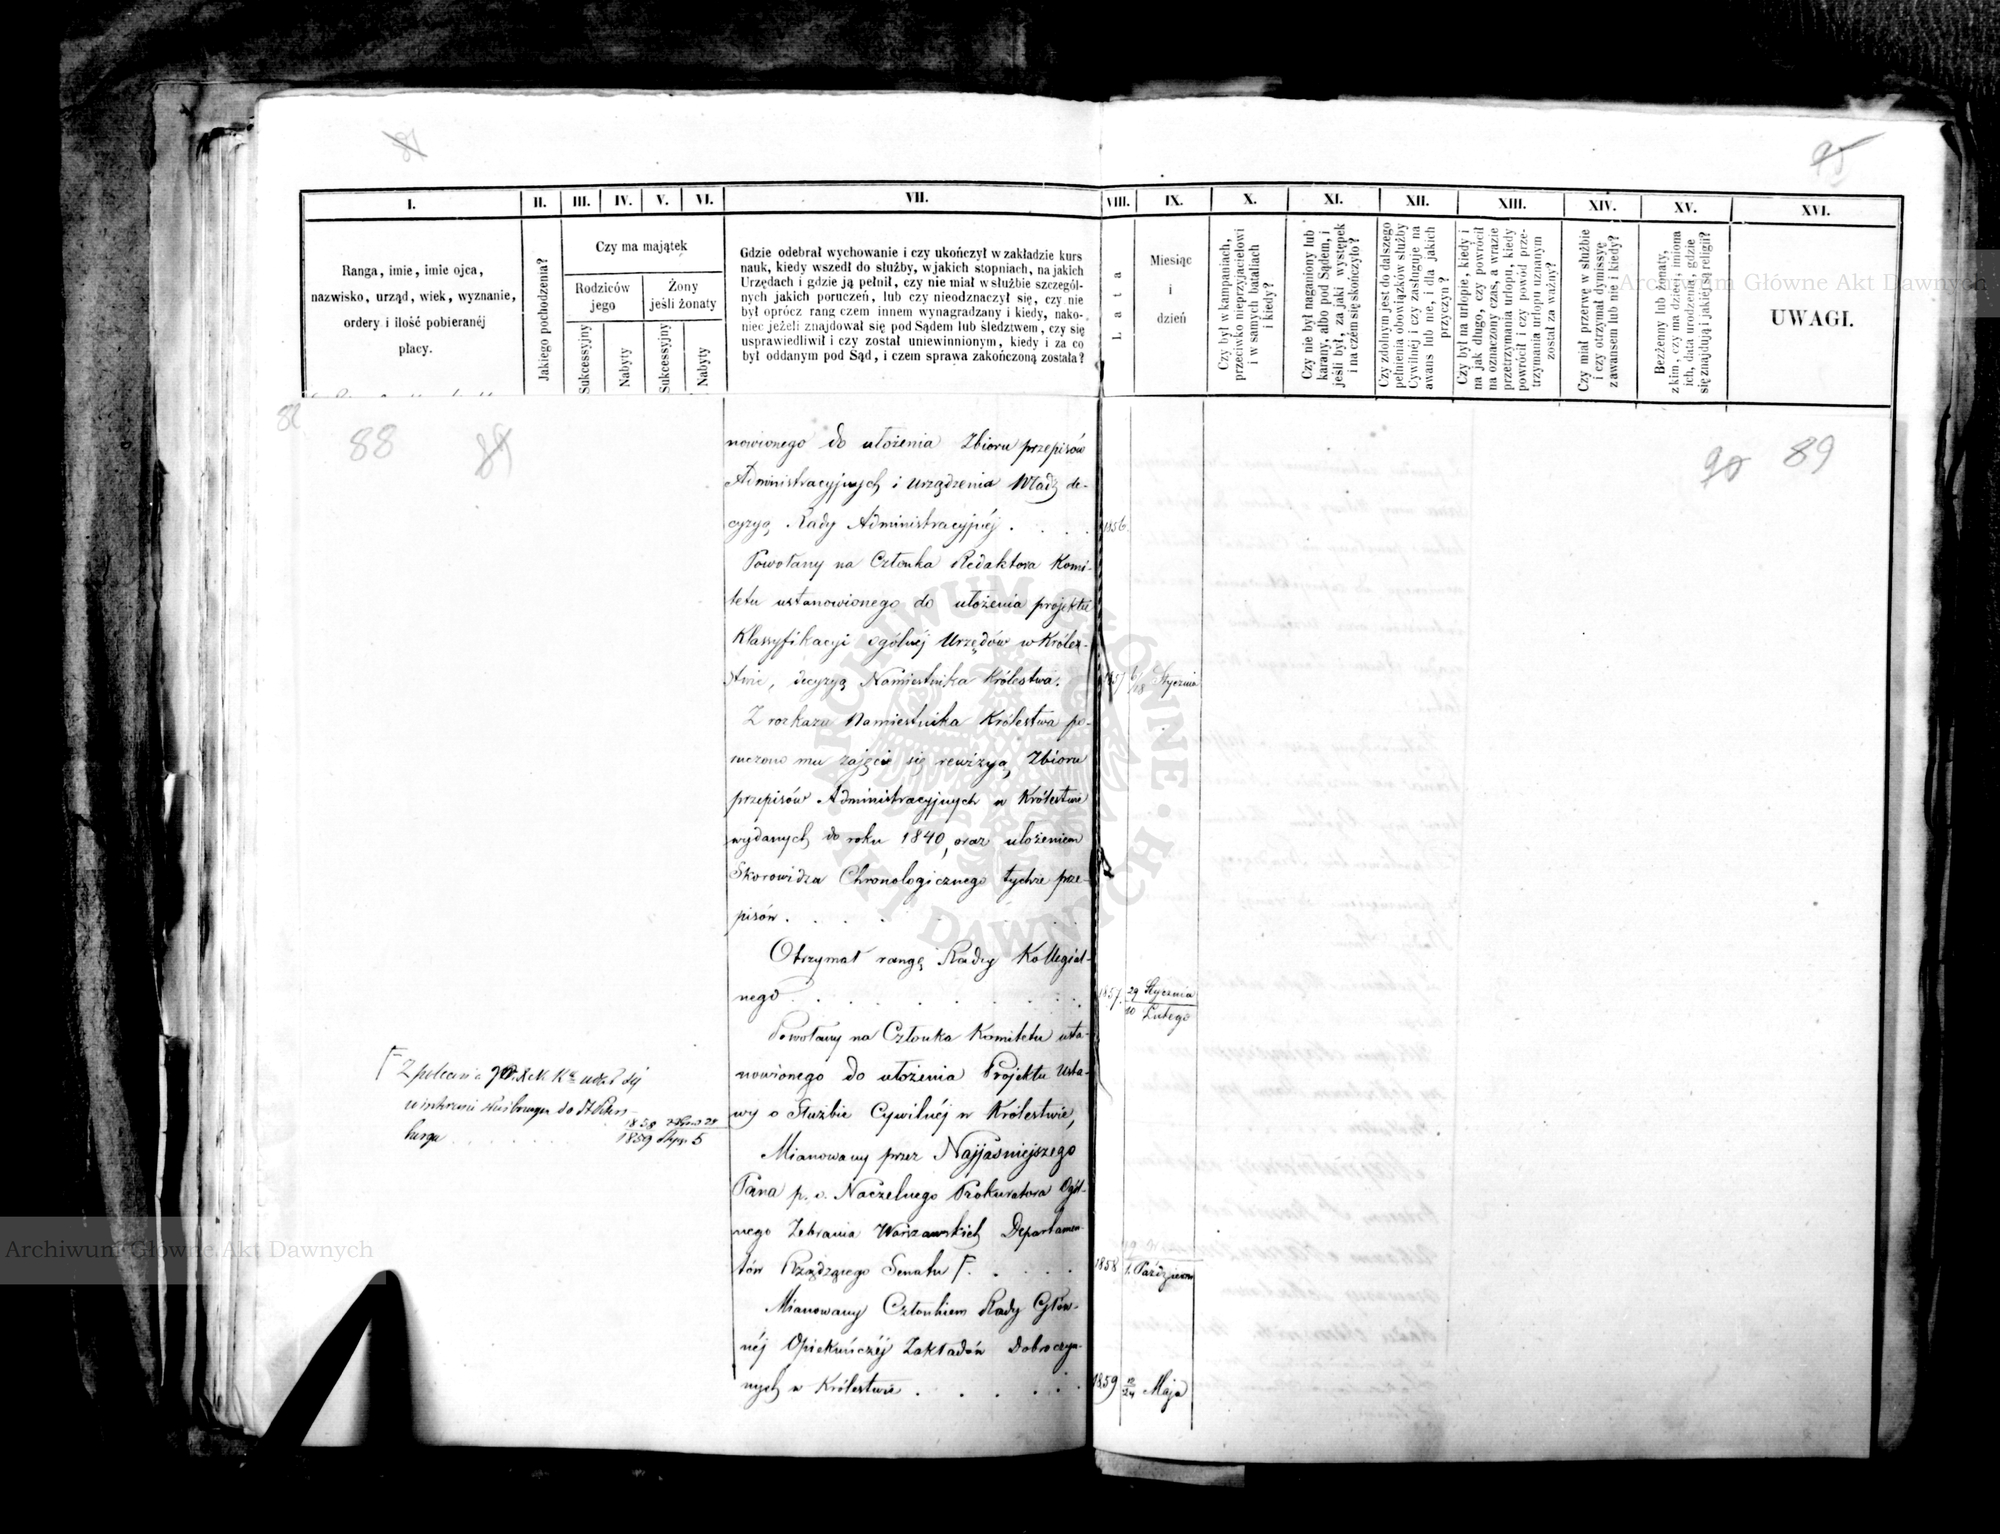 87
95
I. II. III. IV. V. VI. VII. VIII. IX. X. XI. XII. XIII. XIV. XV. XVI.
Ranga, imie, imie ojca,
nazwisko, urząd, wiek, wyznanie,
ordery i ilość pobieranéj
płacy.
Jakiego pochodzenia?
Czy ma majątek
Rodziców
jego
Żony
jeśli żonaty
Sukcessyjny
Nabyty
Sukcessyjny
Nabyty
Gdzie odebrał wychowanie i czy ukończył w zakładzie kurs
nauk, kiedy wszedł do służby, w jakich stopniach, na jakich
Urzędach i gdzie ją pełnił, czy nie miał w służbie szczegól-
nych jakich poruczeń, lub czy nieodznaczył się, czy nie
był oprócz rang czem innem wynagradzany i kiedy, nako-
niec jeżeli znajdował się pod Sądem lub śledztwem, czy się
usprawiedliwił i czy został uniewinnionym, kiedy i za co
był oddanym pod Sąd, i czem sprawa zakończoną została?
Lata
Miesiąc
i
dzień
Czy był w kampaniach,
przeciwko nieprzyjacielowi
i w samych bataliach
i kiedy?
Czy nie był naganiony lub
karany, albo pod Sądem, i
jeśli był, za jaki występek
i na czém się skończyło?
Czy zdolnym jest do dalszego
pełnienia obowiązków służby
Cywilnéj i czy zasługuje na
awans lub nie, i dla jakich
przyczyn?
Czy był na urlopie, kiedy i
na jak długo, czy powrócił
na oznaczony czas, a w razie
przetrzymania urlopu, kiedy
powrócił i czy powód prze-
trzymania urlopu uznanym
został za ważny?
Czy miał przerwę w służbie
i czy otrzymał dymissyę
z awansem lub nie i kiedy?
Bezżenny lub żonaty,
z kim, czy ma dzieci, imiona
ich, data urodzenia, gdzie
się znajdują i jakiéj są religii?
UWAGI.
88 89
90 89
nowionego do ułożenia Zbioru przepisów
Administracyjnych i urządzenia Władz de-
cyzyą Rady Administracyjnéj . . . . 1856.
Powołany na Członka Redaktora Komi-
tetu ustanowionego do ułożenia projektu
Klassyfikacyi ogólnéj Urzędów w Króles-
twie, decyzyą Namiestnika Królestwa. 1857 6/18 Stycznia
Z rozkazu Namiestnika Królestwa po-
ruczono mu zajęcie się rewizyą Zbioru
przepisów Administracyjnych w Królestwie
wydanych do roku 1840, oraz ułożeniem
Skorowidza Chronologicznego tychże prze-
pisów . . . .
Otrzymał rangę Radcy Kollegial-
nego . . . . . . . 1857. 29 Stycznia
10 Lutego
Powołany na Członka Komitetu usta-
nowionego do ułożenia Projektu Usta-
wy o Służbie Cywilnéj w Królestwie,
Mianowany przez Najjaśniejszego
Pana p. o. Naczelnego Prokuratora Ogól-
nego Zebrania Warszawskich Departamen-
tów Rządzącego Senatu F. . . . . 1858 1. Paździer
Mianowany Członkiem Rady Głów-
néj Opiekuńczéj Zakładów Dobroczyn-
nych w Królestwie . . . . . . 1859 12/24 Maja
F Z polecenia
do St Peters-
burga . . . . . . 1858
1859 5
ARCHIWUM GŁÓWNE AKT DAWNYCH
Archiwum Główne Akt Dawnych
Archiwum Główne Akt Dawnych